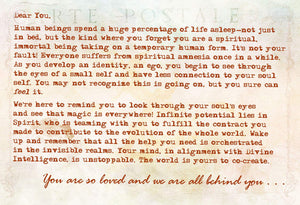 Dear You,
Human beings spend a huge percentage of life asleep—not just
in bed, but the kind where you forget you are a spiritual,
immortal being taking on a temporary human form. It's not your
fault! Everyone suffers from spiritual amnesia once in a while.
As you develop an identity, an ego, you begin to see through
the eyes of a small self and have less connection to your soul
self. You may not recognize this is going on, but you sure can
feel it.
We're here to remind you to look through your soul's eyes
and see that magic is everywhere! Infinite potential lies in
Spirit, who is teaming with you to fulfill the contract you
made to contribute to the evolution of the whole world. Wake
up and remember that all the help you need is orchestrated
in the invisible realms. Your mind, in alignment with Divine
Intelligence, is unstoppable. The world is yours to co-create.
You are so loved and we are all behind you . . .